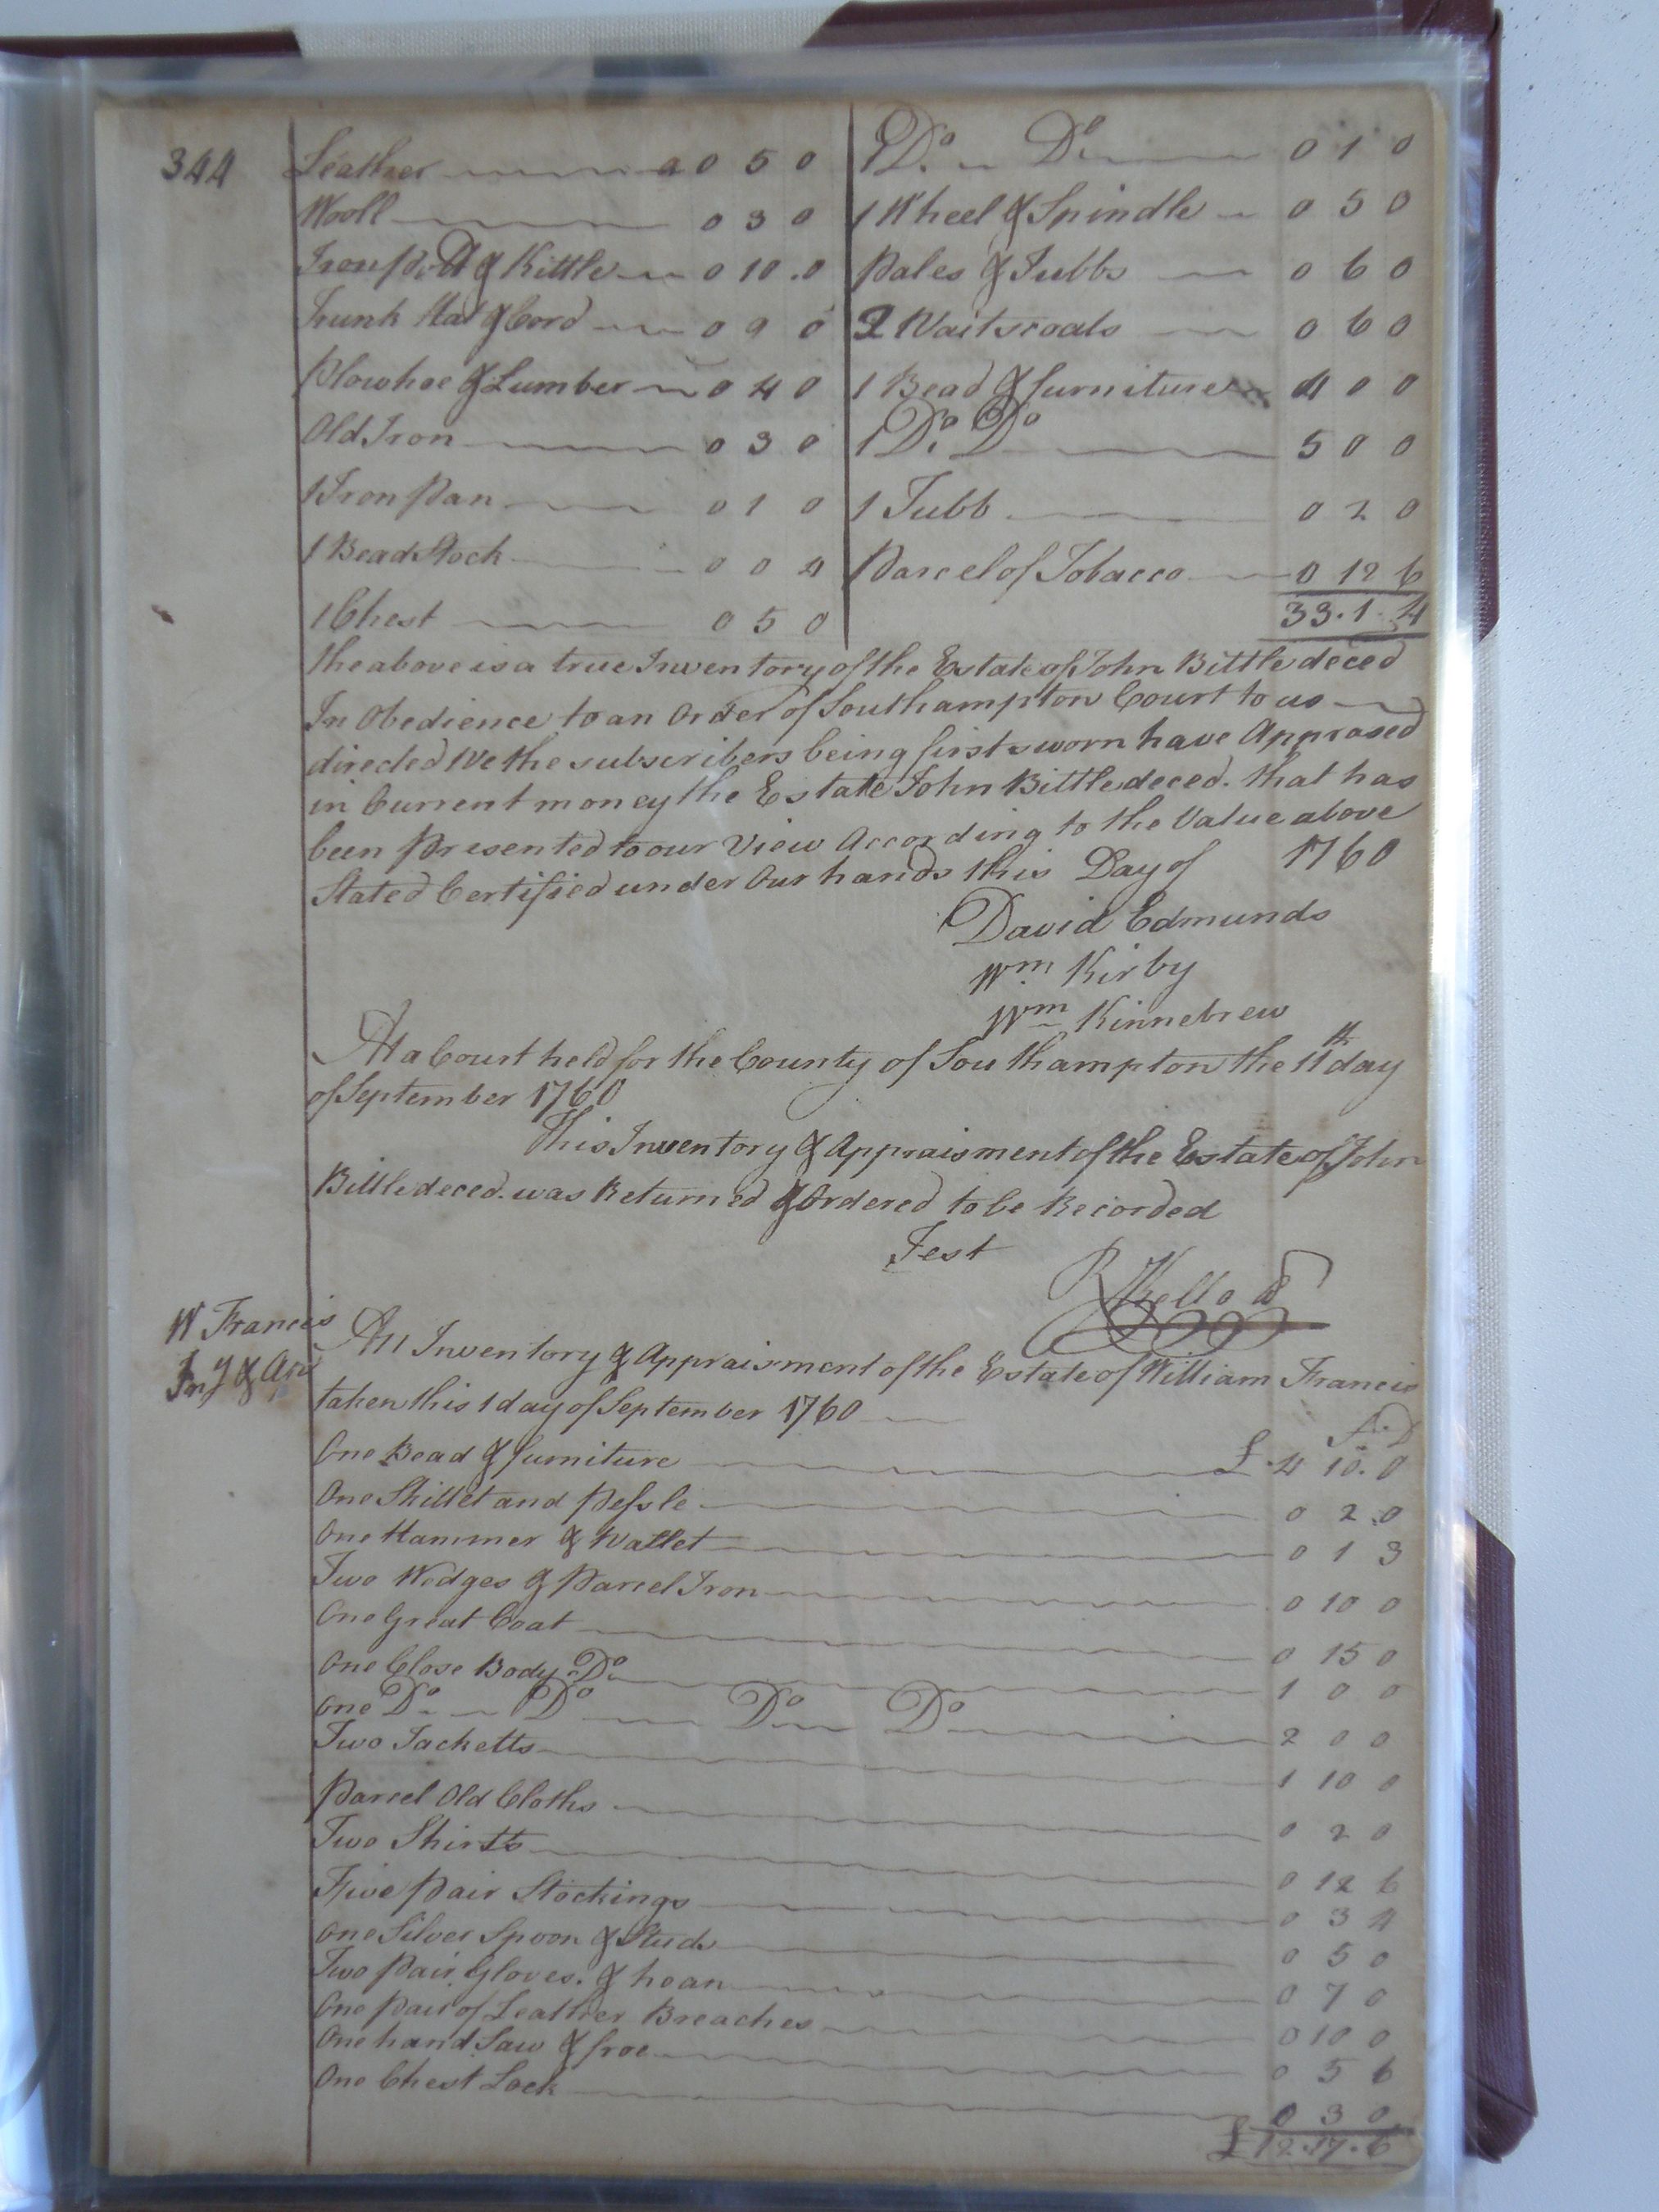 344
Leather 0 5 0
Wooll 0 3 0
Iron Pott & Kittle 0 10 . 0
Trunk Hat & Cord 0 9 0
Plowhoe & Lumber 0 4 0
Old Iron 0 3 0
1 Iron Pan 0 1 0
1 Bead Stock 0 0 4
1 Chest 0 5 0
1 Do. Do. 0 1 0
1 Wheel & Spindle 0 5 0
Pales & Tubbs 0 6 0
2 Waitscoats 0 6 0
1 Bead & furniture 4 0 0
1 Do. Do 5 0 0
1 Tubb 0 2 0
Parcel of Tobacco 0 12 6
33 . 1 . 4
the above is a true Inventory of the Estate of John Bittle deced
In Obedience to an Order of Southampton Court to us
directed We the subscribers being first sworn have Apprased
in Current money the Estate John Bittle deced. that has
been Presented to our View According to the Value above
Stated Certified under Our hands this Day of 1760
David Edmunds
Wm Kirby
Wm Kinnebrew
At a Court held for the County of Southampton the 11th day
of September 1760
This Inventory & Appraisment of the Estate of John
Bittle deced. was Returned & Ordered to be Recorded
Test
R Kello
W Francis
Iny & Apt
An Inventory & Appraisment of the Estate of William Francis
taken this 1 day of September 1760
S. D
One Bead & furniture £ 4 10 . 0
One Skillet and Pessle 0 2 0
One Hammer & Wallet 0 1 3
Two Wedges & Parcel Iron 0 10 0
One Great Coat 0 15 0
One Close Body Do 1 0 0
One Do Do Do Do 2 0 0
Two Jacketts 1 10 0
Parcel Old Cloths 0 2 0
Two Shirts 0 12 6
Five Pair Stockings 0 3 4
One Silver Spoon & Studs 0 5 0
Two Pair Gloves. & hoan 0 7 0
One Pair of Leather Breaches 0 10 0
One hand Saw & froe 0 5 6
One Chest Lock 0 3 0
£ 12 . 17 . 6